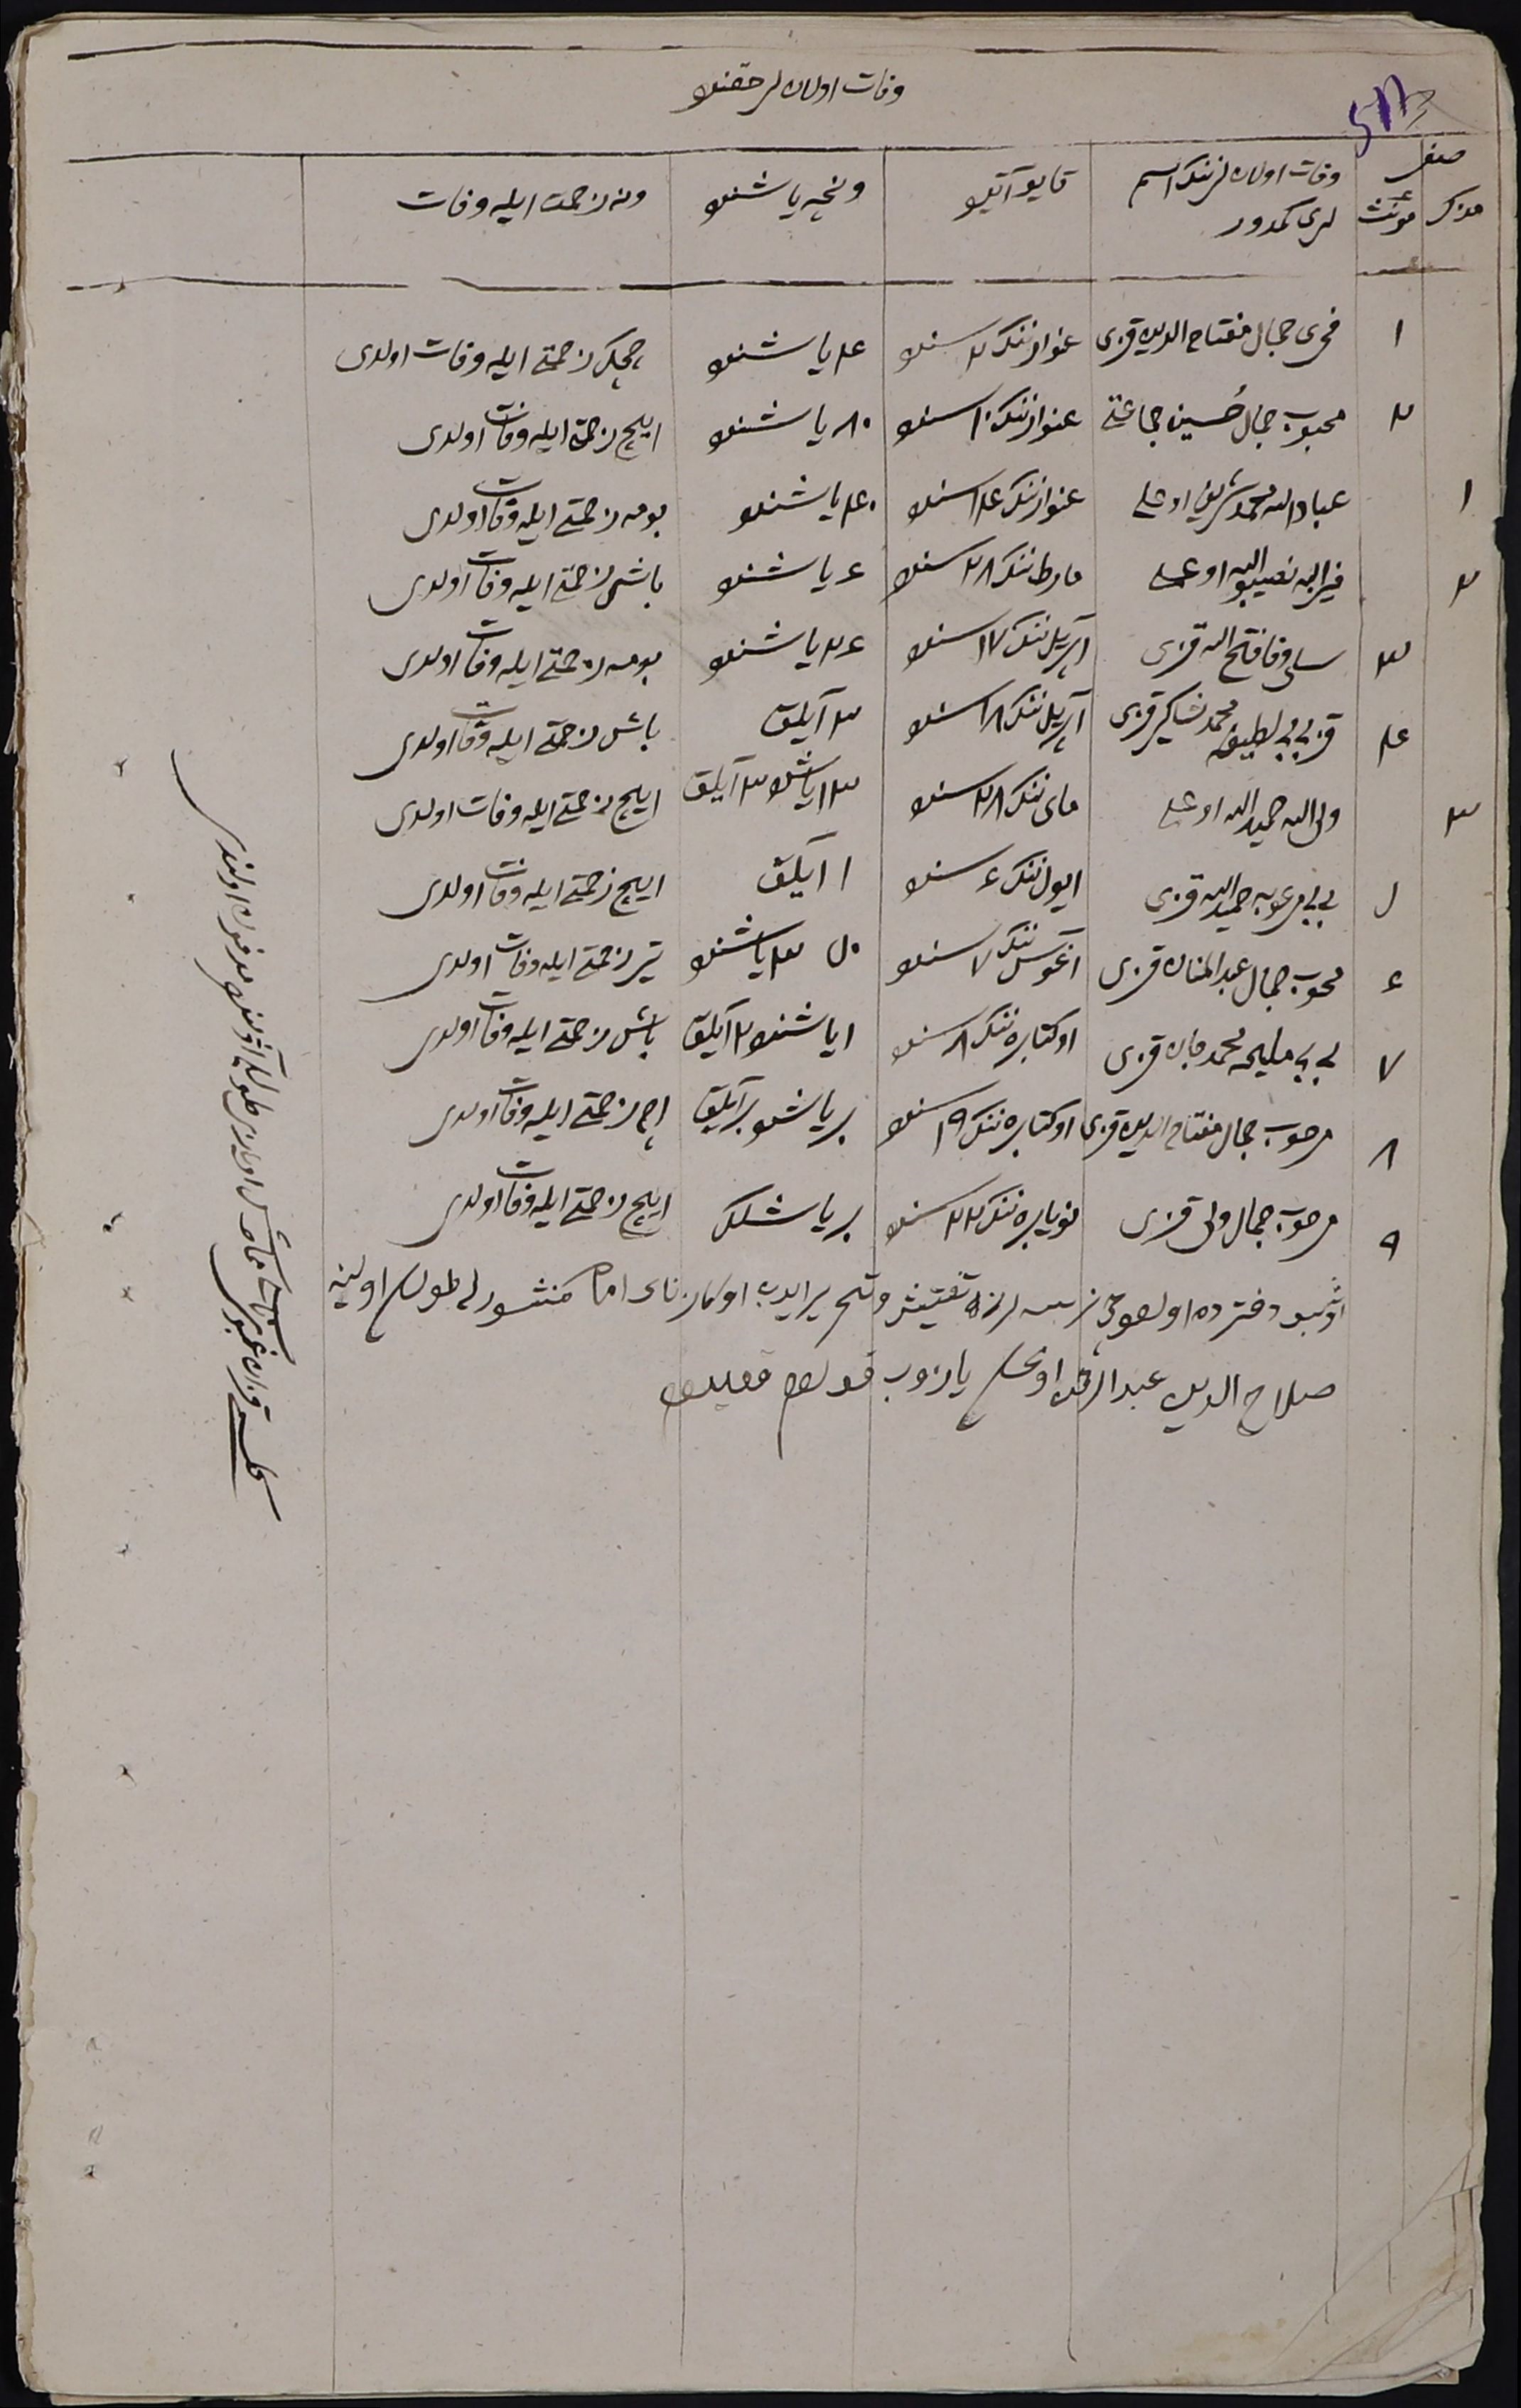 وفات اولان لر حقنده
صنفی
مذکر مونث
وفات اولان لرننک اسم لری کمدور
قایو آیده
و نچه یاشنده
و نه زحمت ایله وفات
۱ فخری جمال مفتاح الدین قزی عنوارننک ۲ سنده ۴ یاشنده چچک زحمتی ایله وفات اولدی
۲ محبوب جمال حُسین جماعتی عنوارننک ۱۰ سنده ۸۰ یاشنده ایچ زحمتی ایله وفات اولدی
۱ عباد الله محمد شریف اوغلی عنوارننک ۱۴ سنده ۴۰ یاشنده بومه زحمتی ایله وفات اولدی
۲ خیر الله نصیب الله اوغلی مارط ننک ۲۸ سنده ۶ یاشنده باش زحمتی ایله وفات اولدی
۳ فتح الله قزی آپریل ننک ۱۷ سنده ۲۶ یاشنده بومه زحمتی ایله وفات اولدی
۴ قزبی بی لطیفه محمد شاکر قزی آپریل ننک ۱۸ سنده ۳ آیلیق باش زحمتی ایله وفات اولدی
۳ ولی الله حمید الله اوغلی مای ننک ۲۸ سنده ۱۳ یاشنده ۳ آیلیق ایچ زحمتی ایله وفات اولدی
۵ بی بی مرغوبه حمید الله قزی ایول ننک ۶ سنده ۱ آیلیق ایچ زحمتی ایله وفات اولدی
۶ محبوب جمال عبد المنان قزی آغوس ننک ۷ سنده ۵۳ یاشنده تیر زحمتی ایله وفات اولدی
۷ بی بی ملیحه محمد جان قزی اوکتابره ننک ۸ سنده ۱ یاشنده ۲ آیلیق باش زحمتی ایله وفات اولدی
۸ مرحوب جمال مفتاح الدین قزی اوکتابره ننک ۱۹ سنده بر یاشنده بر آیلیق اچ زحمتی ایله وفات اولدی
۹ مرحوب جمال ولی قزی نویابره ننک ۲۲ سنده بر یاشلک ایچ زحمتی ایله وفات اولدی
اوشبو دفترده اولغوچی نرسه لرنه تفتیش و تحریر ایدب اوکازنای امام منشورلی
صلاح الدین عبد الرحمن اوغلی یازوب قولم قویدم